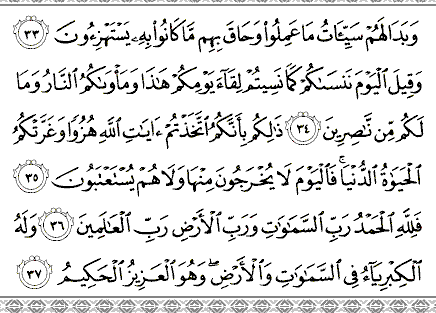 وَبَدَا لَهُمْ سَيِّـَٔاتُ مَا عَمِلُوا۟ وَحَاقَ بِهِم مَّا كَانُوا۟ بِهِۦ يَسْتَهْزِءُونَ ٣٣
وَقِيلَ ٱلْيَوْمَ نَنسَىٰكُمْ كَمَا نَسِيتُمْ لِقَآءَ يَوْمِكُمْ هَـٰذَا وَمَأْوَىٰكُمُ ٱلنَّارُ وَمَا
لَكُم مِّن نَّـٰصِرِينَ ٣٤ ذَٰلِكُم بِأَنَّكُمُ ٱتَّخَذْتُمْ ءَايَـٰتِ ٱللَّهِ هُزُوًا وَغَرَّتْكُمُ
ٱلْحَيَوٰةُ ٱلدُّنْيَا ۚ فَٱلْيَوْمَ لَا يُخْرَجُونَ مِنْهَا وَلَا هُمْ يُسْتَعْتَبُونَ ٣٥
فَلِلَّهِ ٱلْحَمْدُ رَبِّ ٱلسَّمَـٰوَٰتِ وَرَبِّ ٱلْأَرْضِ رَبِّ ٱلْعَـٰلَمِينَ ٣٦ وَلَهُ
ٱلْكِبْرِيَآءُ فِى ٱلسَّمَـٰوَٰتِ وَٱلْأَرْضِ ۖ وَهُوَ ٱلْعَزِيزُ ٱلْحَكِيمُ ٣٧